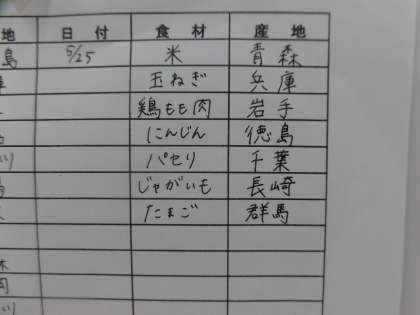 地 日付 食材 産地
島 5/25 米 青森
玉ねぎ 兵庫
鶏もも肉 岩手
にんじん 徳島
パセリ 千葉
じゃがいも 長崎
たまご 群馬